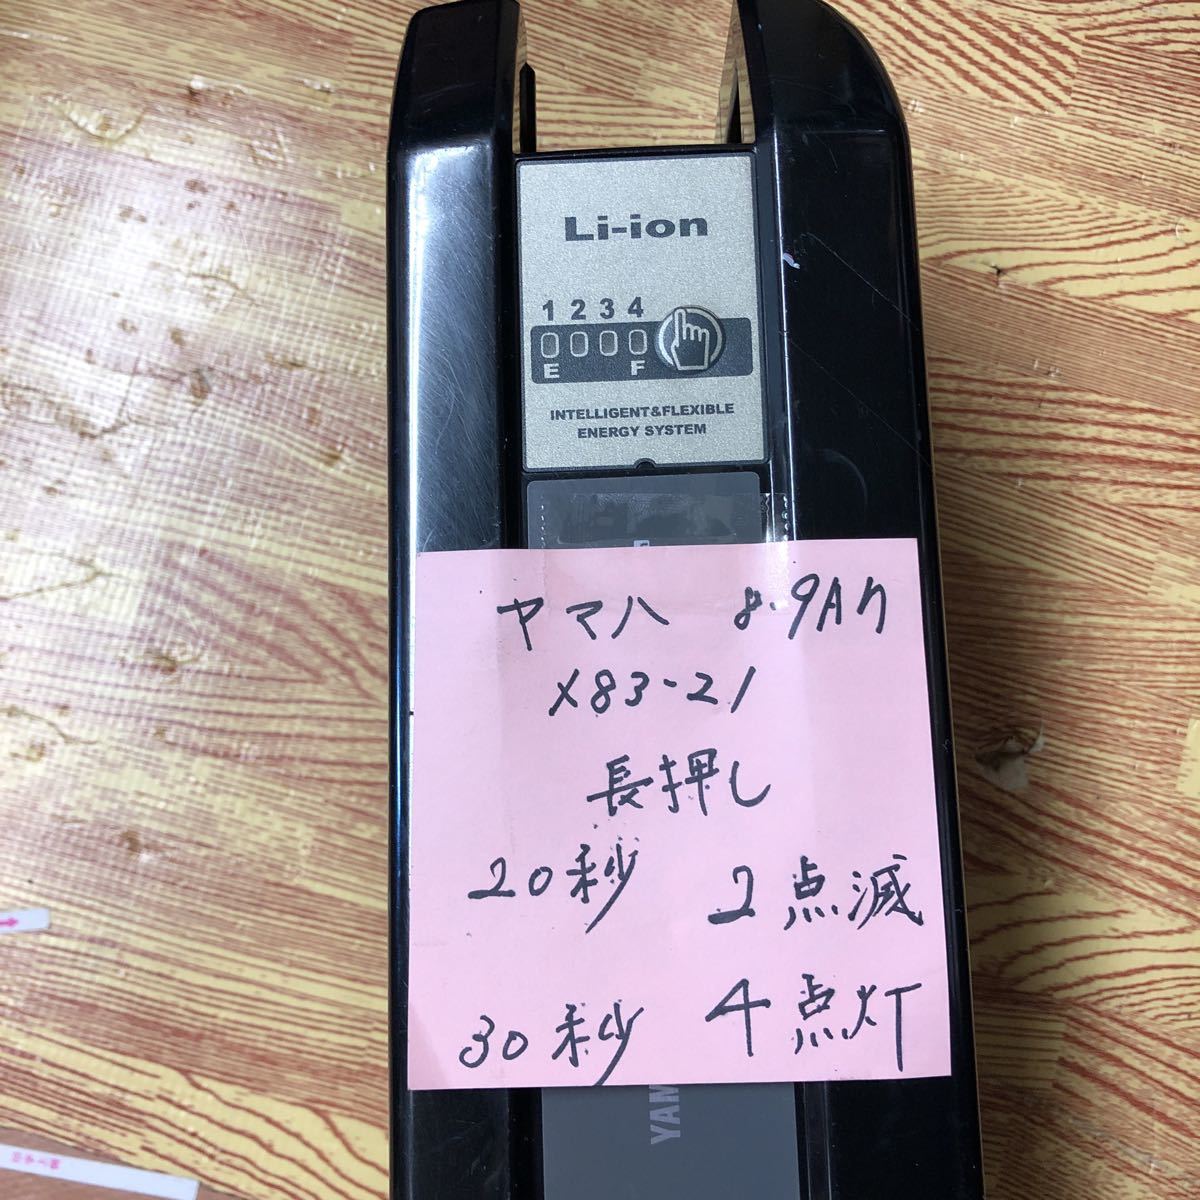 Li-ion
1 2 3 4
E F
INTELLIGENT&FLEXIBLE
ENERGY SYSTEM
ヤマハ 8.9Ah
X83-21
長押し
20秒 2点滅
30秒 4点灯
YAM